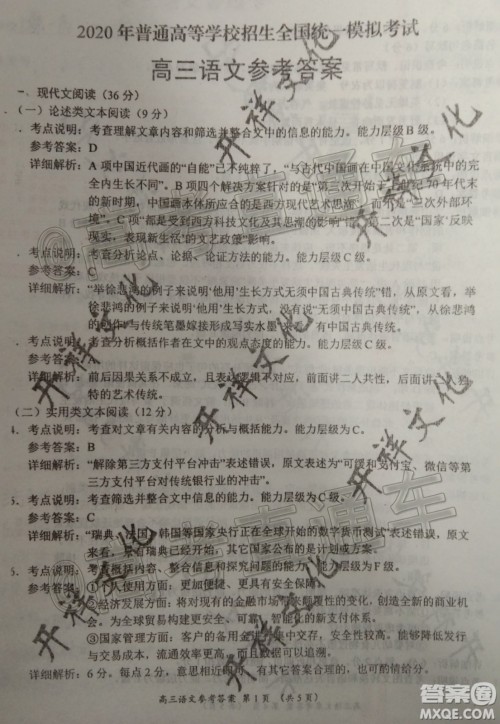 2020年普通高等学校招生全国统一模拟考试
高三语文参考答案
一、现代文阅读（36分）
（一）论述类文本阅读（9分）
考点说明：考查理解文章内容和筛选并整合文中的信息的能力。能力层级B级。
参考答案：D
详细解析：A项中国近代画的“自能”已不纯粹了，“与古代中国画在中国文化系统中的完
全内生长不同”。B项的解决方案针对的是“第三次开始于上世纪20年代末
的新时期，中国画本体所应合的是西方现代艺术思潮，而不是‘三次外部环
境’。C项“都是受到西方科技文化及其思潮的影响”错，第二次是“‘国家’反映
现实，表现新生活’的文艺政策”影响。
考点说明：考查分析论点、论据、论证方法的能力。能力层级C级。
参考答案：C
详细解析：“举徐悲鸿的例子来说明‘他用’生长方式无须中国古典传统”错，从原文看，举
徐悲鸿的例子来说明‘他用’生长方式无须中国古典传统，从徐悲鸿的
与传统笔墨嫁接形成写实水墨来
有中国古典传统。
考点说明：考查分析概括作者在文中的观点态度的能力。能力层级C级。
参考答案：A
详细解析：前后因果关系不成立，且表述有误，前面讲二人共性，后面讲
特的艺术传统。
（二）实用类文本阅读（12分）
4. 考点说明：考查对文章有关内容的分析与概括能力。能力层级C级。
参考答案：B
详细解析：“解除第三方支付平台冲击”表述错误，原文表述为“可缓和支付宝、微信等第
三方支付平台对传统银行业的冲击”。
5. 考点说明：考查筛选并整合文中信息的能力。能力层级C级。
参考答案：C
详细解析：“瑞典、法国、韩国等国家央行正在全球开始的数字货币测试”表述错误，原
文是只有瑞典已经开始，其他国家公布的是计划或方案。
考点说明：考查分析概括、整合信息和探究问题的能力。能力层级F级。
参考答案：①个人使用方面：更加便捷、安全和
②经济发展方面：将对现有的金融市场带来颠覆性冲击，创造全新的商业机
会，为全球贸易构建更安全、可靠、智能化的新支付体系。
③国家管理方面：客户的备用金
付交易乱象、金融管理困难等局面。
详细解析：6分，每点2分，意思相近即可，有其他观点，言之有理也可
高三语文参考答案 第1页 （共5页）
开祥文化
开祥文化
开祥文化
开祥文化
开祥文化
高考直通车
答案圈
MXQE.COM